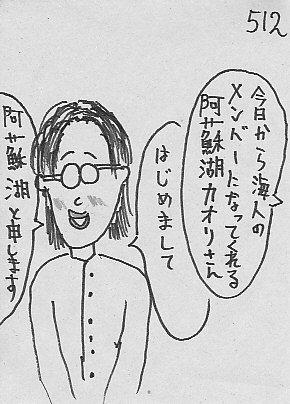 512
今日から海人の
メンバーになってくれる
阿蘇湖カオリさん
はじめまして
阿蘇湖と申します